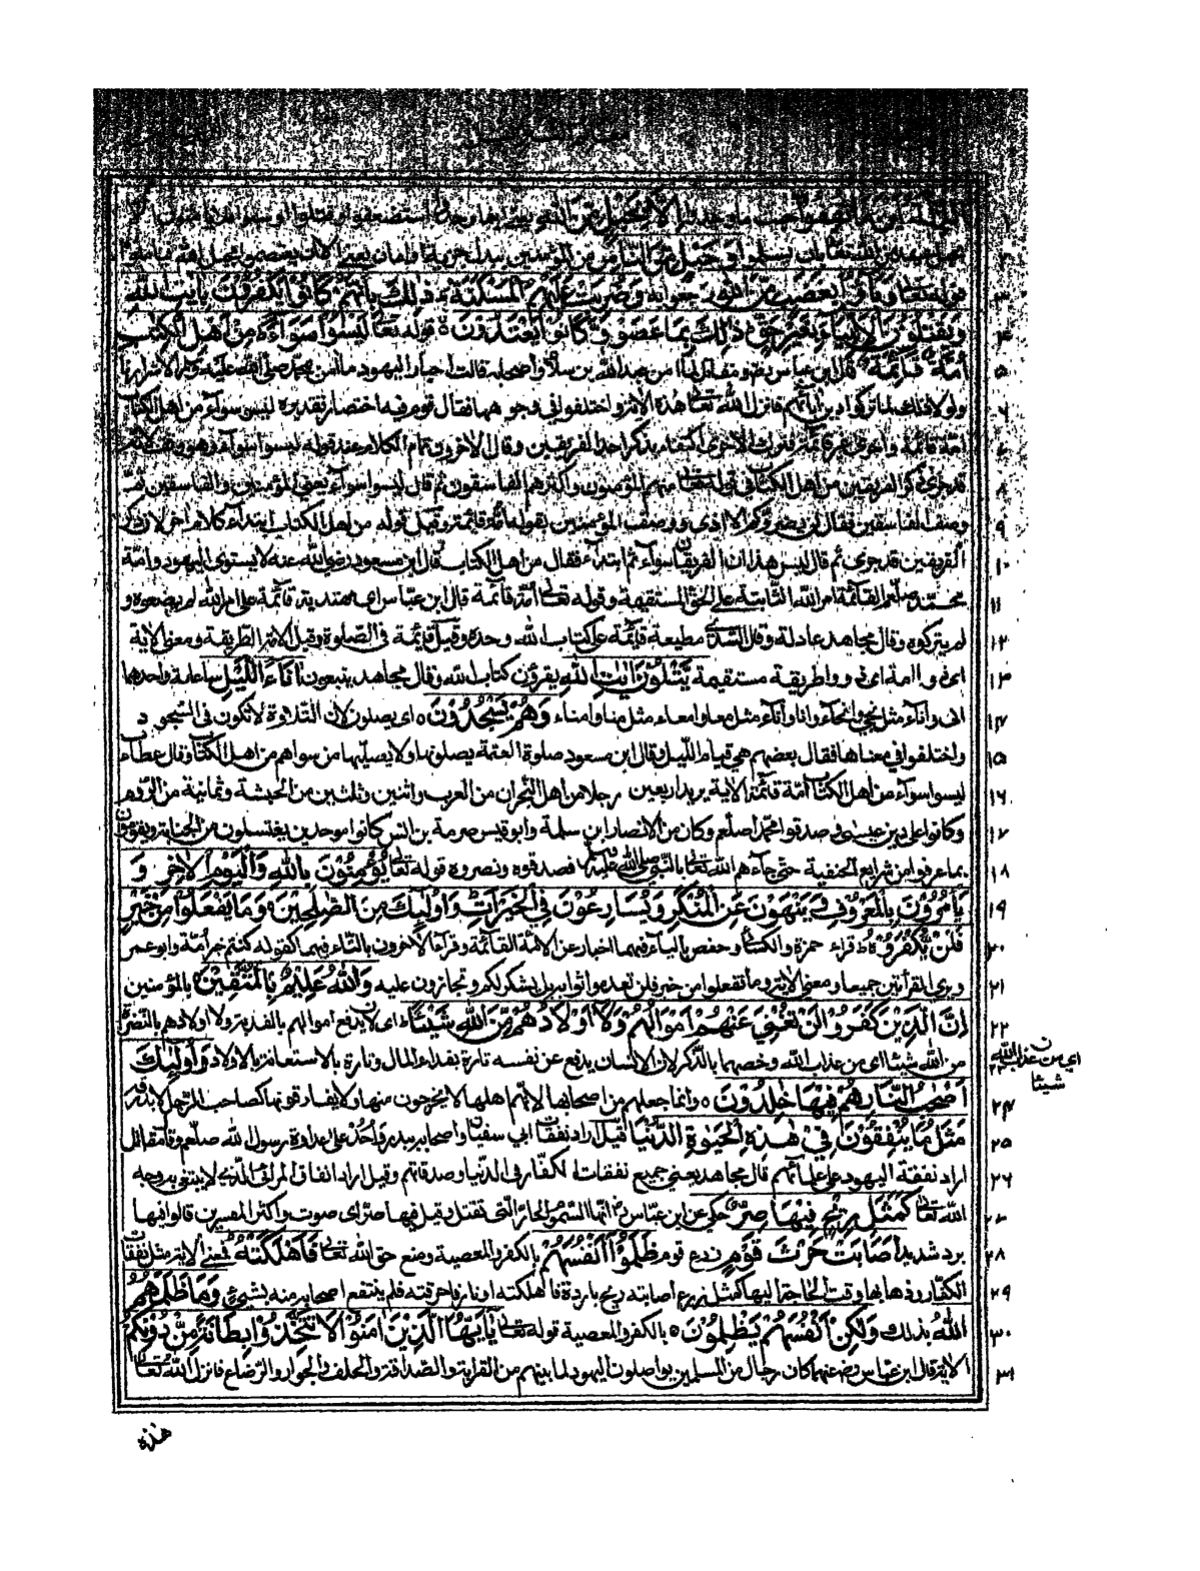 الذلة اينما ثقفوا حيث ما وجدوا الا بحبل من الله
بان يسلموا وحبل من الناس من المؤمنين ببذل جزية او امان يعني الا ان يعتصموا بحبل الله فيامنوا
قوله تعالى وباؤا بغضب من الله رجعوا به وضربت عليهم المسكنة ذلك بانهم كانوا يكفرون بايت الله
ويقتلون الانبياء بغير حق ذلك بما عصوا وكانوا يعتدون ه قوله تعالى ليسوا سواء من اهل الكتب
امة قائمة قال ابن عباس رضـ ومقاتل لما امن عبد الله بن سلام واصحابه قالت احبار اليهود ما امن بمحمد صلى الله عليه وسلم الا شرارنا
ولولا ذلك لما تركوا دين ابائهم فانزل الله تعالى هذه الاية واختلفوا في وجوهها فقال قوم فيه اختصار تقديره ليسوا سوآء من اهل الكتاب
امة قائمة واخرى غير قائمة فترك الاخرى اكتفاء بذكر احد الفريقين وقال الاخرون تمام الكلام عند قوله ليسوا سوآء وهو وقف لانه
قد جرى ذكر الفريقين من اهل الكتاب في قوله تعالى منهم المؤمنون واكثرهم الفاسقون ثم قال ليسوا سوآء يعني المؤمنين والفاسقين ثم
وصف الفاسقين فقال لن يضروكم الا اذى ووصف المؤمنين بقوله امة قائمة وقيل قوله من اهل الكتاب ابتداء كلام اخر لان ذكر
الفريقين قد جرى ثم قال ليس هذان الفريقان سوآء ثم ابتدآء فقال من اهل الكتاب قال ابن مسعود رضي الله عنه لا يستوى اليهود وامة
محمد صلعم القائمة بامر الله الثابتة على الحق المستقيمة وقوله تعالى امة قائمة قال ابن عباس اى مهتدية قائمة على امر الله لم يضعوه و
لم يتركوه وقال مجاهد عادلة وقال السدي مطيعة قائمة على كتاب الله وحده وقيل قائمة في الصلوة وقيل الامة الطريقة ومعنى الآية
اى ذووا امة اى ذووا طريقة مستقيمة يتلون ايت الله يقرؤن كتاب الله وقال مجاهد يتبعون اناء الليل ساعاته واحدها
انى وانآء مثل نحى وانحآء وانا وانآء مثل معا وامعاء مثل منا وامناء وهم يسجدون ه اى يصلون لان التلاوة لا تكون في السجود
واختلفوا في معناها فقال بعضهم هي قيام الليل وقال ابن مسعود صلوة العتمة يصلونها ولا يصليها من سواهم من اهل الكتاب وقال عطاء
ليسوا سوآء من اهل الكتاب امة قائمة الآية يريد اربعين رجلا من اهل النجران من العرب واثنين وثلثين من الحبشة وثمانية من الروم
وكانوا على دين عيسى وصدقوا محمدا صلعم وكان من الانصار ابن سلمة وابو قيس صرمة بن انس كانوا موحدين يغتسلون من الجنابة ويقومون
بما عرفوا من شرايع الحنفية حتى جآءهم الله تعالى بالنبي صلى الله عليه وسلم فصدقوه ونصروه قوله تعالى يؤمنون بالله واليوم الاخر و
يامرون بالمعروف وينهون عن المنكر ويسارعون في الخيرات واولئك من الصلحين ه وما يفعلوا من خير
فلن يكفروه ط قراء حمزة والكسائي وحفص بالياء فيهما اخبار عن الامة القائمة وقرأ الاخرون بالتاء فيهما كقوله كنتم خير امة وابو عمر
ويرى القرأتين جميعا ومعنى الاية وما تفعلوا من خير فلن تعدموا ثوابه بل يشكر لكم وتجازون عليه والله عليم بالمتقين ه بالمؤمنين
ان الذين كفروا لن تغني عنهم اموالهم ولا اولادهم من الله شيئا ط اى لا يدفع اموالهم بالفدية ولا اولادهم بالنصرة
من الله شيئا اى من عذاب الله وخصهما بالذكر لان الانسان يدفع عن نفسه تارة بفداء المال وتارة بالاستعانة بالاولاد واولئك
اصحب النار هم فيها خلدون ه وانما جعلهم من اصحابها لانهم اهلها لا يخرجون منها ولا يفارقونها كصاحب الرجل لا يفارقه
مثل ما ينفقون في هذه الحيوة الدنيا قيل اراد نفقات ابي سفيان واصحابه ببدر واحد على عداوة رسول الله صلعم وقال مقاتل
اراد نفقة اليهود على علمائهم قال مجاهد يعني جميع نفقات الكفار في الدنيا وصدقاتهم وقيل اراد انفاق المرائي الذي لا يبتغي به وجه
الله تعالى كمثل ريح فيها صر حكي عن ابن عباس رضـ انها السموم الحارة التي تقتل وقيل فيها صر اى صوت واكثر المفسرين قالوا فيها
برد شديد اصابت حرث قوم زرع قوم ظلموا انفسهم بالكفر والمعصية ومنع حق الله تعالى فاهلكته ط فمعنى الاية مثل نفقات
الكفار وذهابها وقت الحاجة اليها كمثل زرع اصابته ريح باردة فاهلكته او نار فاحرقته فلم ينتفع اصحابه منه بشئ وما ظلمهم
الله بذلك ولكن انفسهم يظلمون ه بالكفر والمعصية قوله تعالى يايها الذين امنوا لا تتخذوا بطانة من دونكم
الاية قال ابن عباس رضـ عنهما كان رجال من المسلمين يواصلون اليهود لما بينهم من القرابة والصداقة والحلف والجوار والرضاع فانزل الله تعالى
اى من عذاب الله
شيئا
هذه